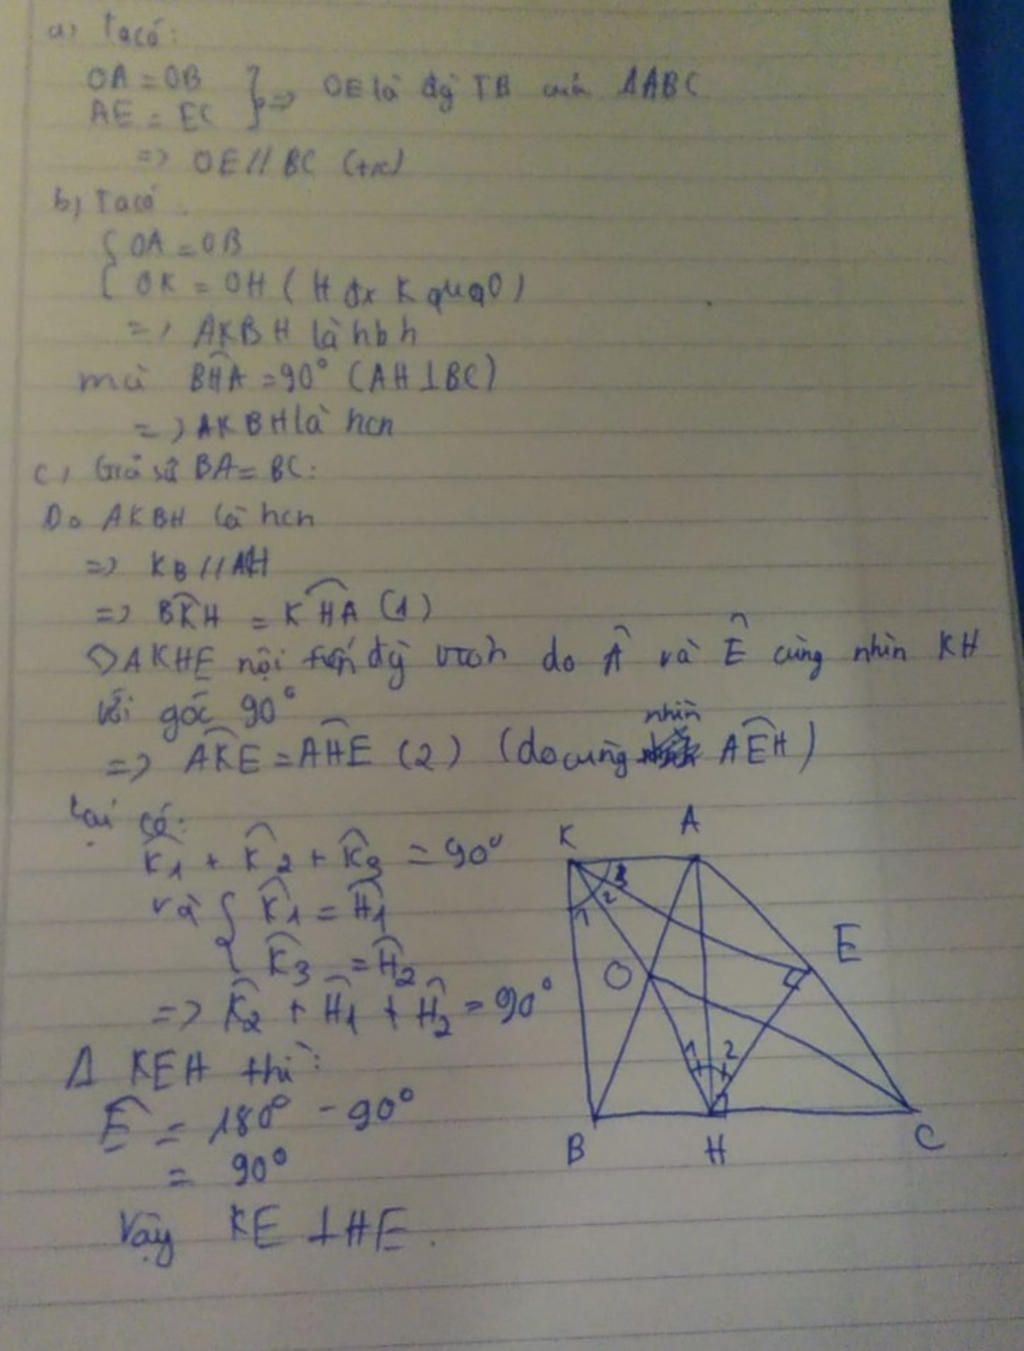 a) Ta có:
OA = OB
AE = EC } => OE là đg TB của ΔABC
=> OE // BC (đpcm)
b) Ta có
{ OA = OB
OK = OH (H đx K qua O)
=> AKBH là hbh
mà BHA = 90° (AH ⊥ BC)
=> AKBH là hcn
c) Giả sử BA = BC:
Do AKBH là hcn
=> KB // AH
=> BKH = KHA (1)
◇AKHE nội tiếp đg tròn do Â và Ê cùng nhìn KH
với góc 90°
=> AKE = AHE (2) (do cùng nhìn AEH)
Lại có:
K1 + K2 + K3 = 90°
và { K1 = H1
K3 = H2
=> K2 + H1 + H2 = 90°
Δ KEH thì:
Ê = 180° - 90°
= 90°
Vậy KE ⊥ HE.
K A
3
1 2
E
O
1 2
B H C